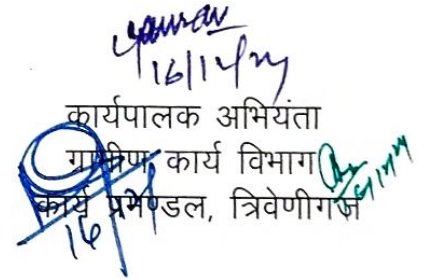 16/12/24
कार्यपालक अभियंता
ग्रामीण कार्य विभाग
कार्य प्रमण्डल, त्रिवेणीगंज